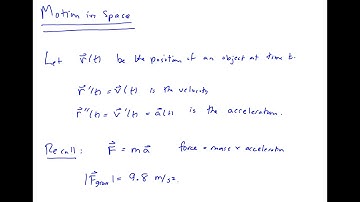 Motion in Space
Let r⃗(t) be the position of an object at time t.
r⃗'(t) = v⃗(t) is the velocity
r⃗''(t) = v⃗'(t) = a⃗(t) is the acceleration.
Recall: F⃗ = ma⃗ force = mass × acceleration
|F⃗grav| = 9.8 m/s².